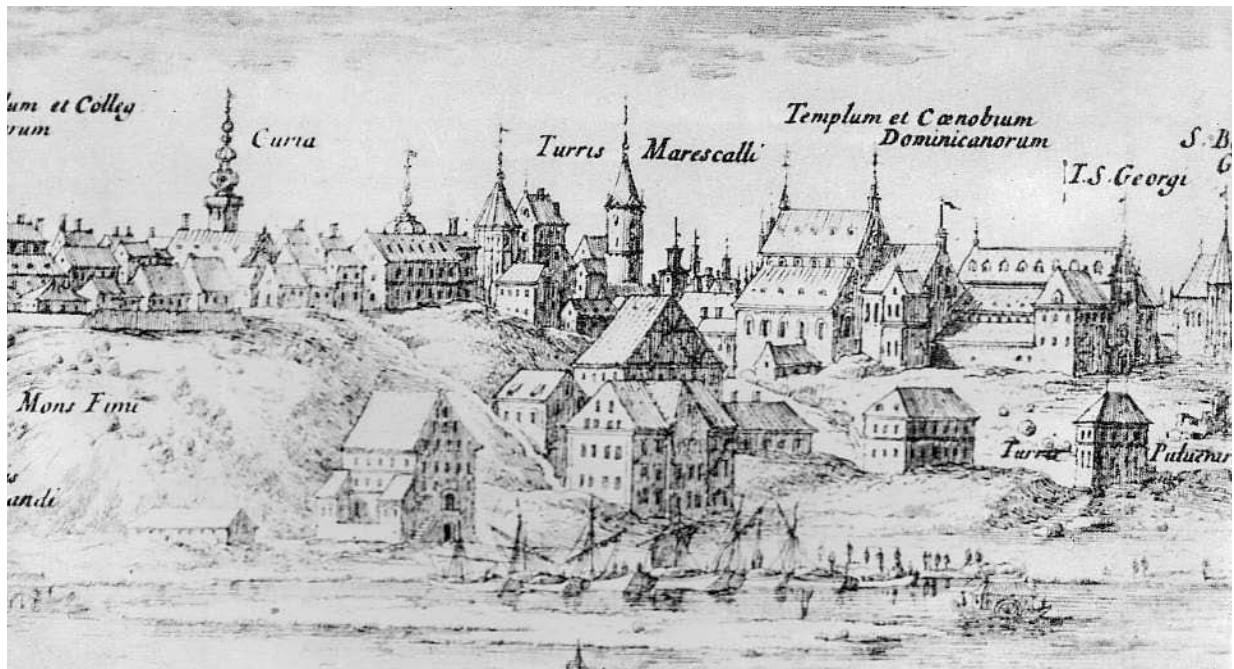 lum et Colleg
rum
Curia
Turris Marescalli
Templum et Cœnobium
Dominicanorum
T.S. Georgi
S. B
G
Mons Fimi
s
andi
Turris Pulueris